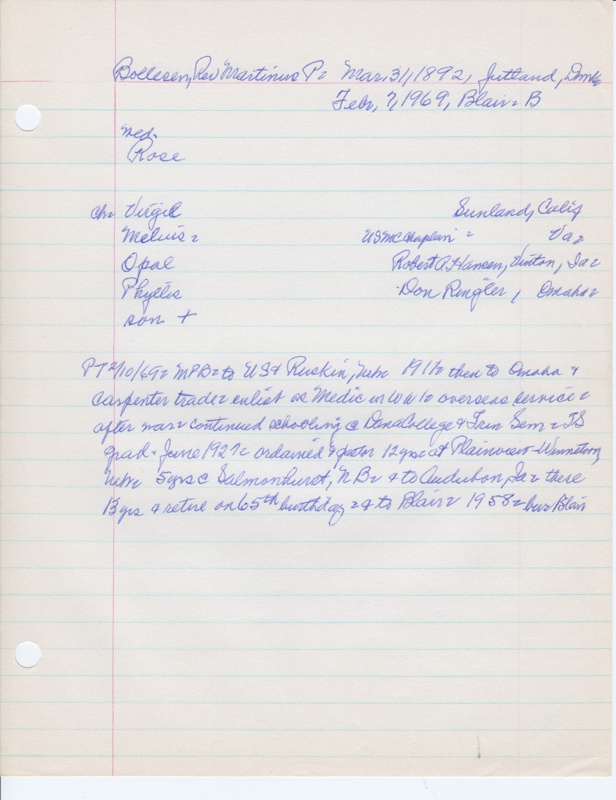 Bollesen, Rev Martinus P. Mar. 31, 1892, Jutland, Dmk
Feb. 7, 1969, Blair - B
Med.
Rose
ch - Virgil Sunland, Calif
Melvis - USMC Chaplain - Va -
Opal Robert A. Hansen, Vinton, Ia -
Phyllis Don Ringler, Omaha -
son +
PT 2/10/69 - MPB - to US & Ruskin, Nebr 1911 - then to Omaha &
carpenter trade - enlist as Medic in WW 1 - overseas service -
after war - continued schooling @ Dana College & Trin Sem - TS
grad - June 1927 - ordained & pastor 12 yrs at Plainview - Winnetoon,
Nebr - 5 yrs @ Salmonhurst, NB - & to Audubon, Ia - there
13 yrs & retire on 65th birthday - & to Blair - 1958 - bur Blair